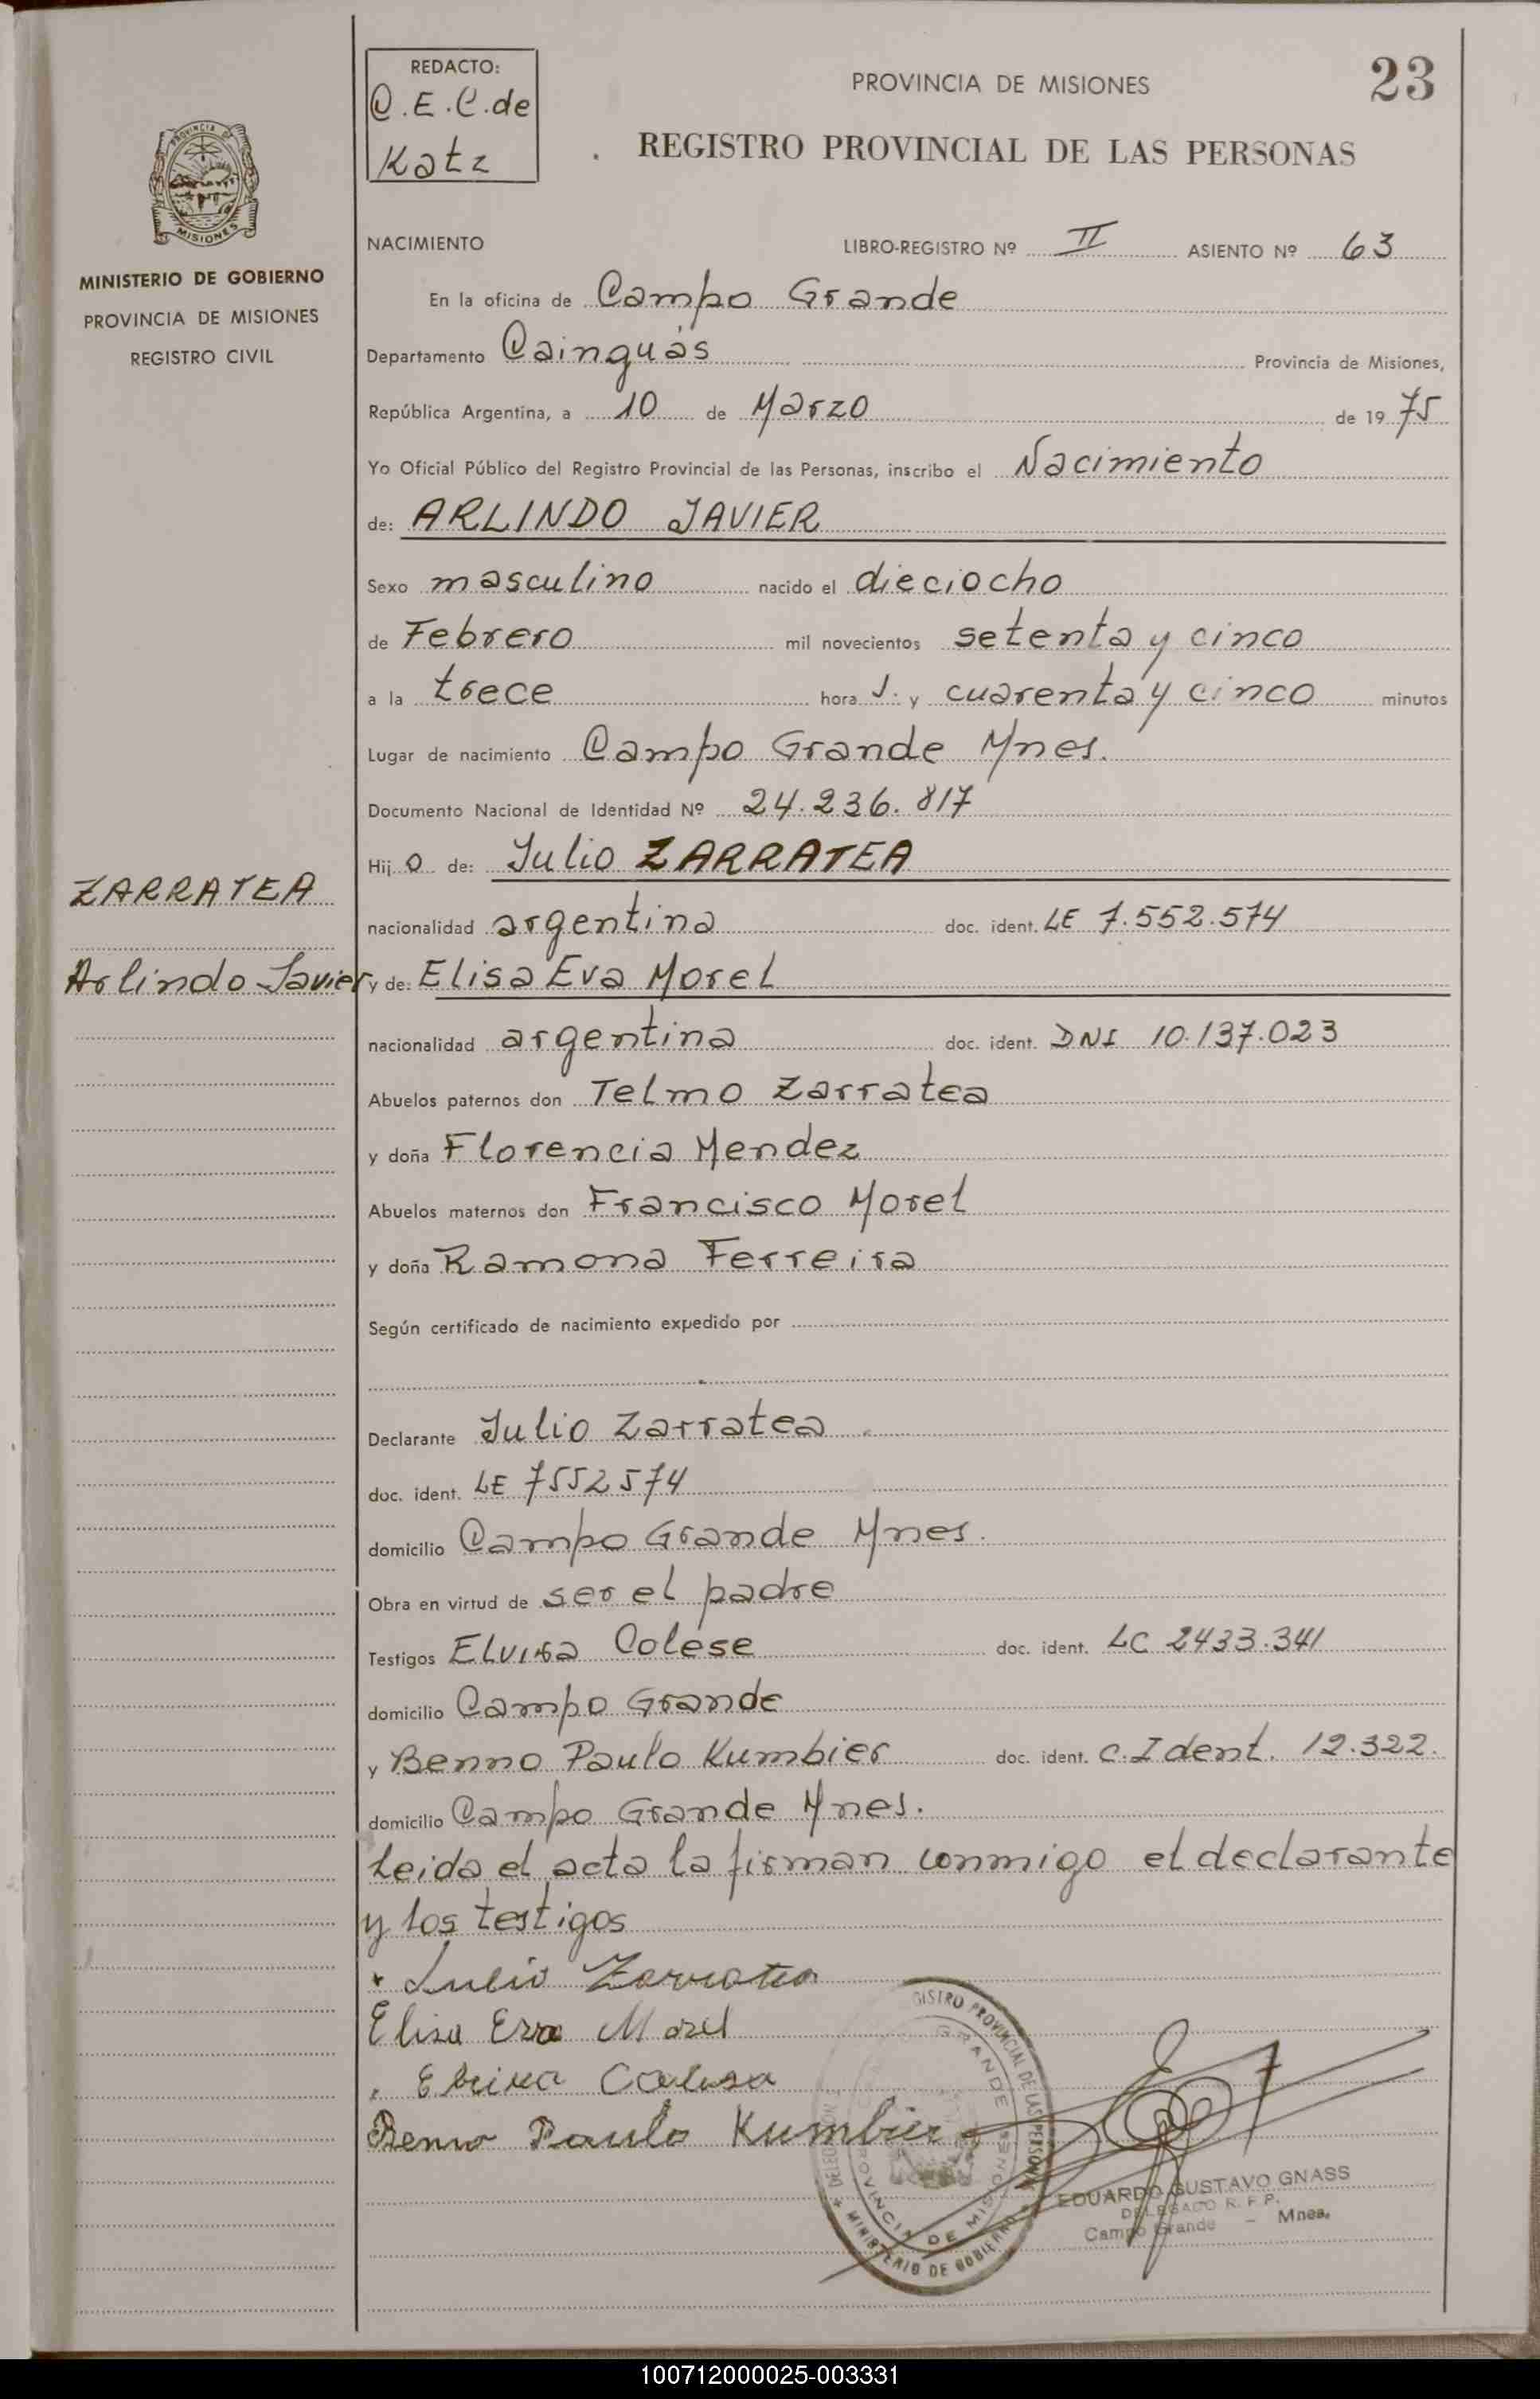 REDACTO:
C.E.C.de
Katz
PROVINCIA DE MISIONES
23
REGISTRO PROVINCIAL DE LAS PERSONAS
PROVINCIA DE
MISIONES
MINISTERIO DE GOBIERNO
PROVINCIA DE MISIONES
REGISTRO CIVIL
NACIMIENTO LIBRO-REGISTRO Nº II ASIENTO Nº 63
En la oficina de Campo Grande
Departamento Cainguás Provincia de Misiones,
República Argentina, a 10 de Marzo de 1975
Yo Oficial Público del Registro Provincial de las Personas, inscribo el Nacimiento
de: ARLINDO JAVIER
Sexo masculino nacido el dieciocho
de Febrero mil novecientos setenta y cinco
a la trece hora s. y cuarenta y cinco minutos
Lugar de nacimiento Campo Grande Mnes.
Documento Nacional de Identidad Nº 24.236.817
Hijo de: Julio ZARRATEA
ZARRATEA
nacionalidad argentina doc. ident. LE 7.552.574
Arlindo Javier
y de: Elisa Eva Morel
nacionalidad argentina doc. ident. DNI 10.137.023
Abuelos paternos don Telmo Zarratea
y doña Florencia Mendez
Abuelos maternos don Francisco Morel
y doña Ramona Ferreira
Según certificado de nacimiento expedido por
Declarante Julio Zarratea
doc. ident. LE 7552574
domicilio Campo Grande Mnes.
Obra en virtud de ser el padre
Testigos Elvira Colese doc. ident. LC 2433.341
domicilio Campo Grande
y Benno Paulo Kumbier doc. ident. C.Ident. 12.322.
domicilio Campo Grande Mnes.
Leida el acta la firman conmigo el declarante
y los testigos
Julio Zarratea
Elisa Eva Morel
Benno Paulo Kumbier
GISTRO PROVINCIAL DE LAS PERSONAS
MINISTERIO DE GOBIERNO
GRANDE
PROVINCIA DE MISIONES
EDUARDO GUSTAVO GNASS
DELEGADO R. P. P.
Campo Grande - Mnes.
100712000025-003331